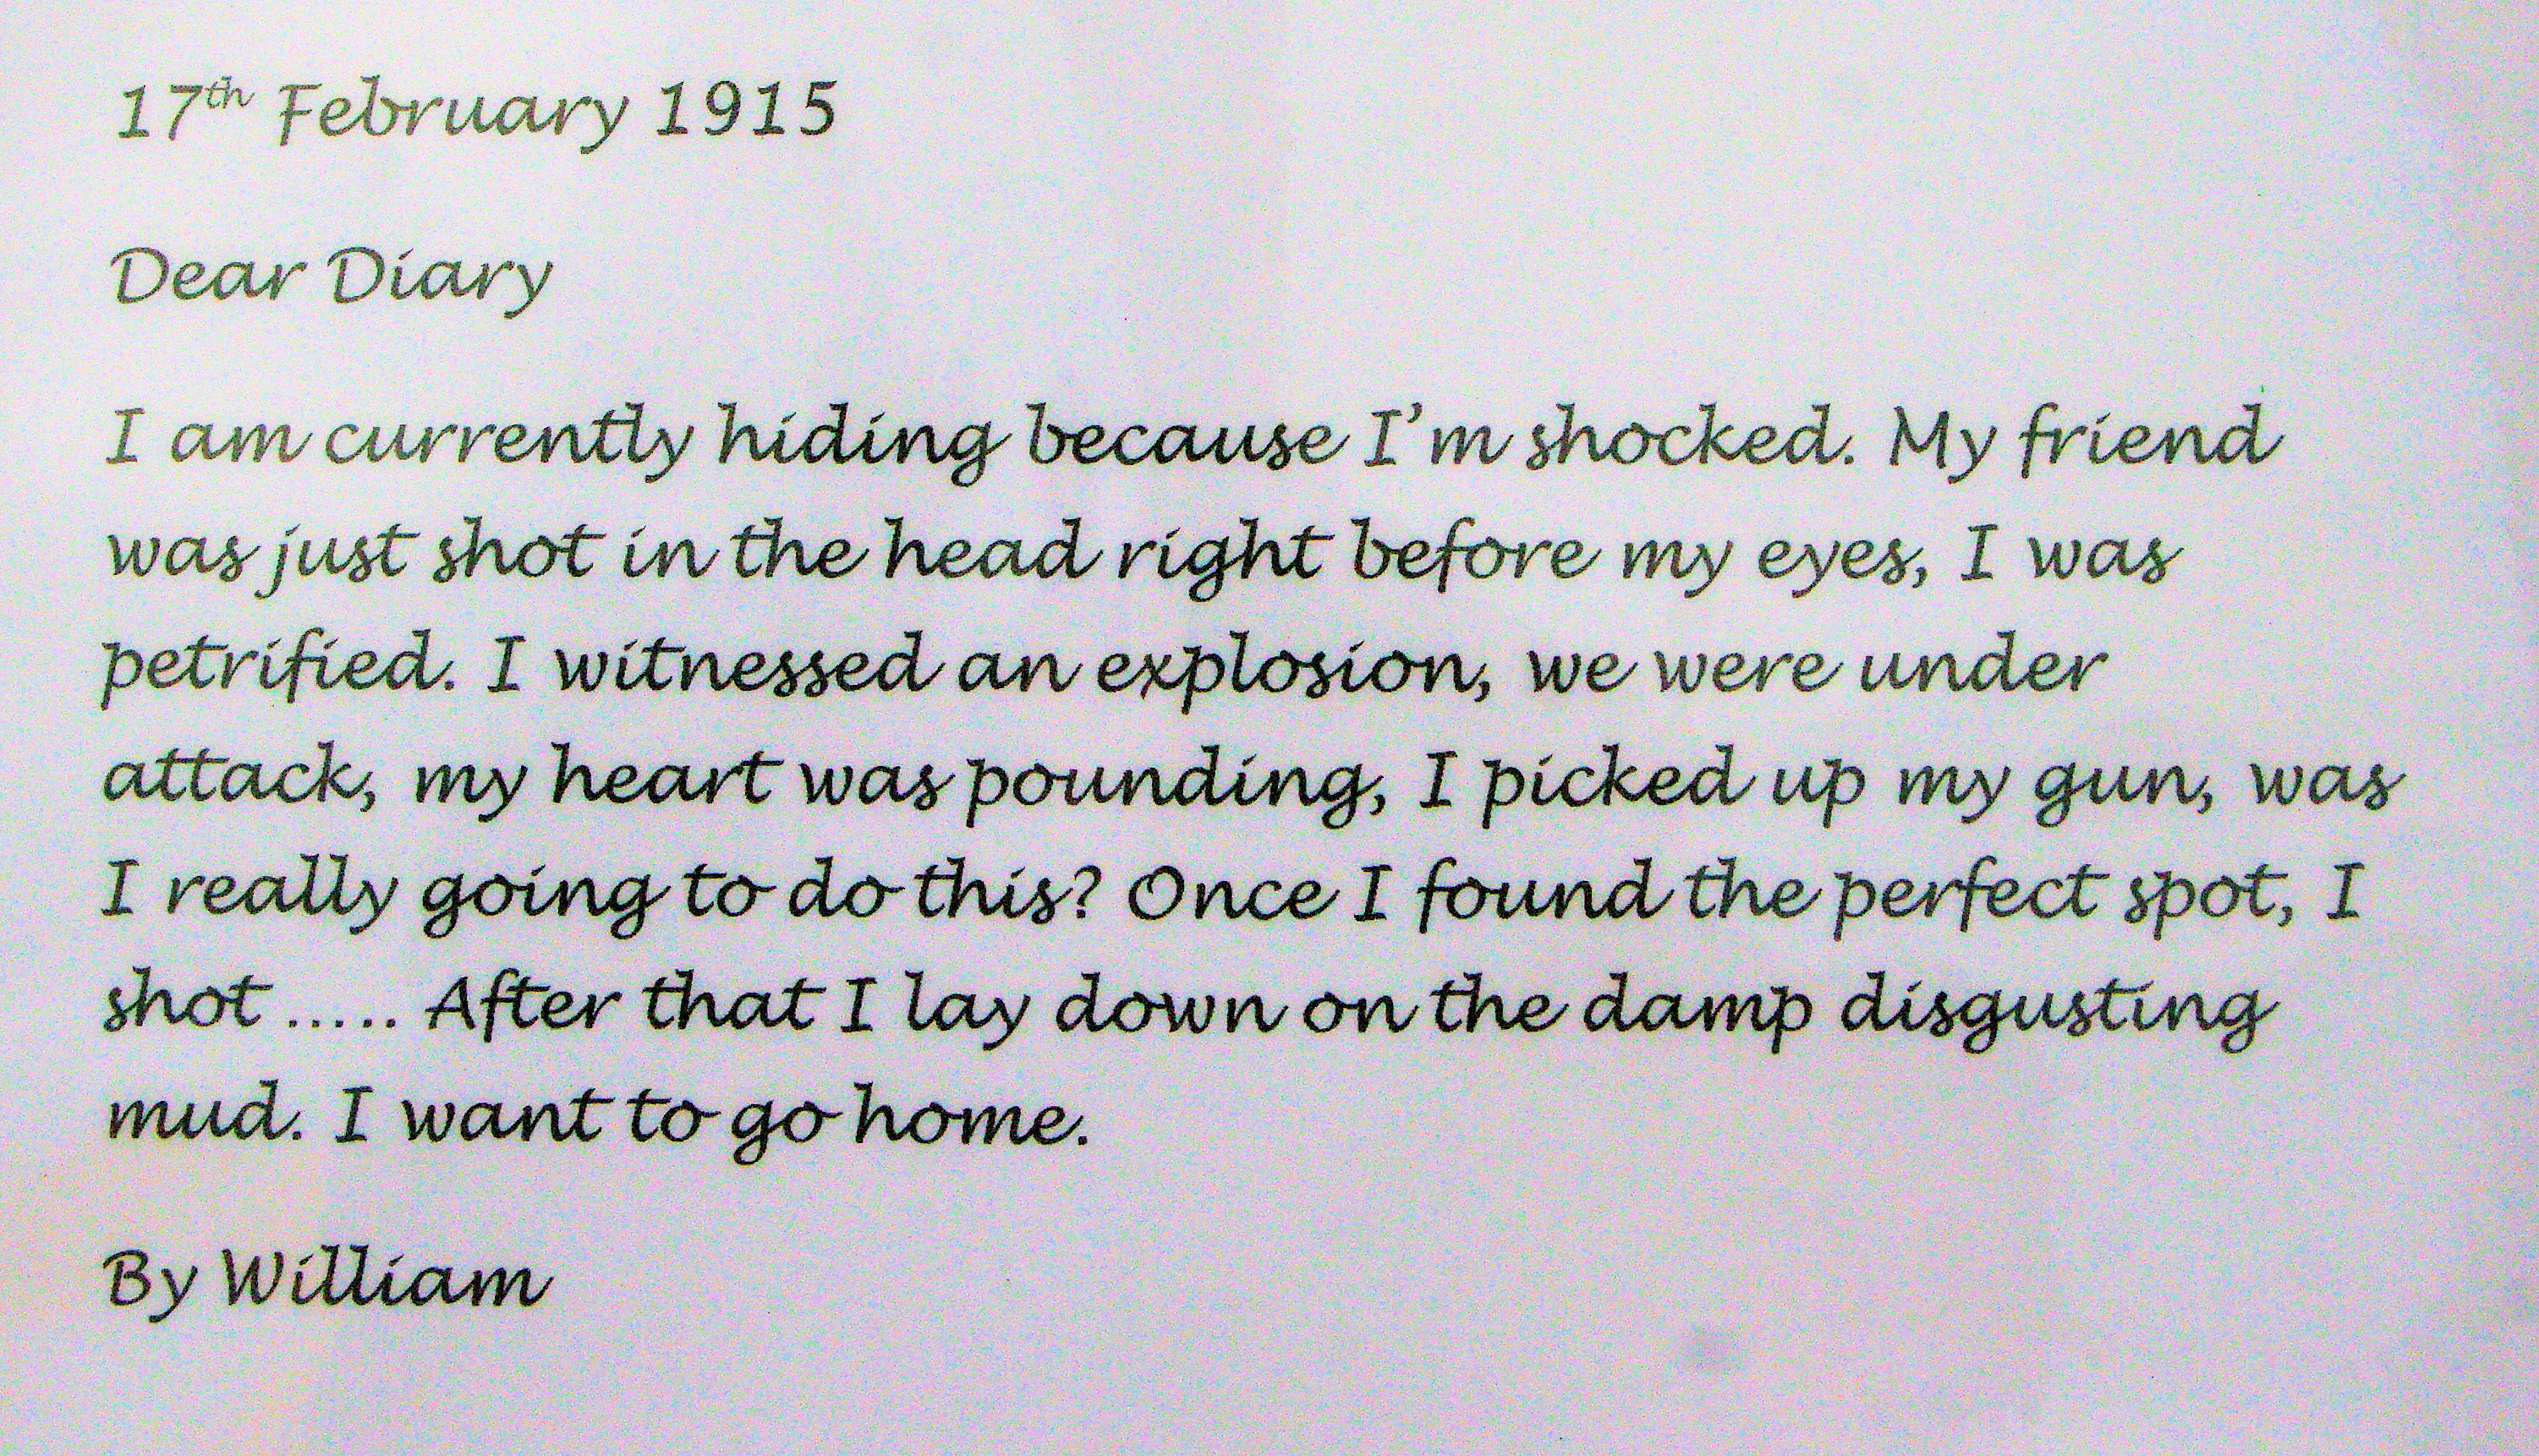 17th February 1915
Dear Diary
I am currently hiding because I'm shocked. My friend
was just shot in the head right before my eyes, I was
petrified. I witnessed an explosion, we were under
attack, my heart was pounding, I picked up my gun, was
I really going to do this? Once I found the perfect spot, I
shot ..... After that I lay down on the damp disgusting
mud. I want to go home.
By William